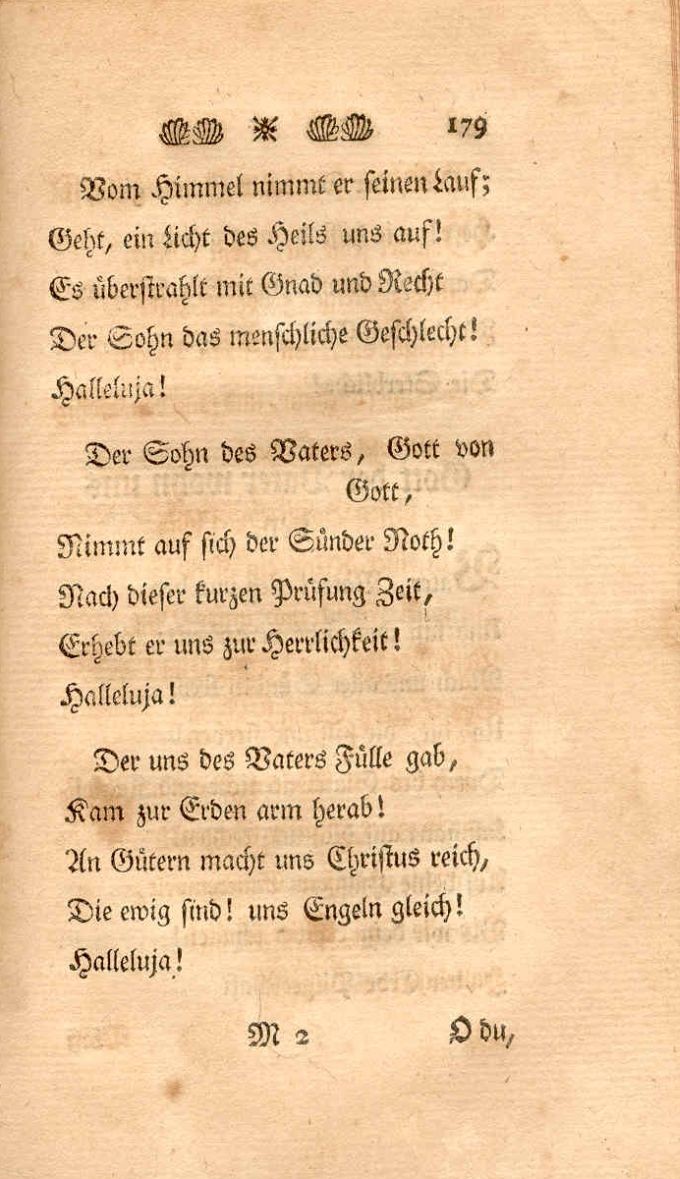 179
Vom Himmel nimmt er seinen Lauf;
Geht, ein Licht des Heils uns auf!
Es überstrahlt mit Gnad und Recht
Der Sohn das menschliche Geschlecht!
Halleluja!
Der Sohn des Vaters, Gott von
Gott,
Nimmt auf sich der Sünder Noth!
Nach dieser kurzen Prüfung Zeit,
Erhebt er uns zur Herrlichkeit!
Halleluja!
Der uns des Vaters Fülle gab,
Kam zur Erden arm herab!
An Gütern macht uns Christus reich,
Die ewig sind! uns Engeln gleich!
Halleluja!
M 2 O du,